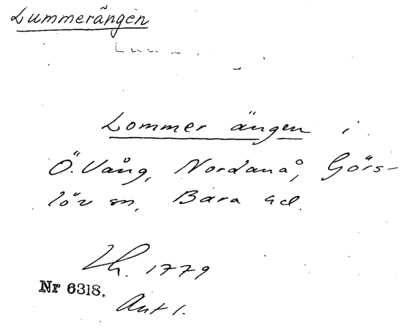 Lummerängen
Lommer ängen i
Ö. Vång, Nordanå, Görs-
löv sn, Bara hd.
1779
Nr 6318.